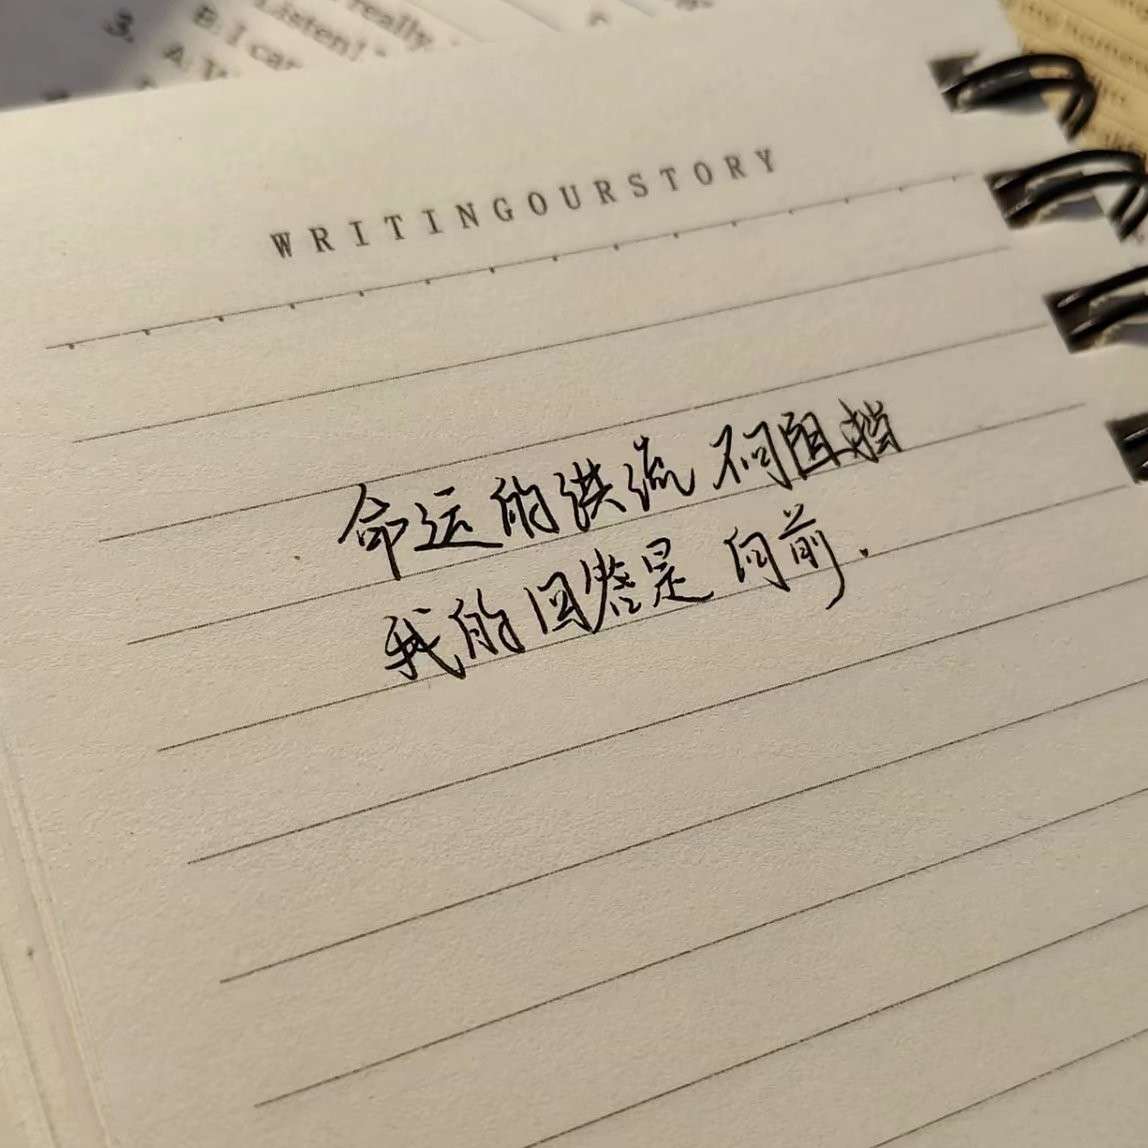 really
Listen!
B. I can
3. A.
WRITINGOURSTORY
命运的洪流 不可阻挡
我的回答是 向前.